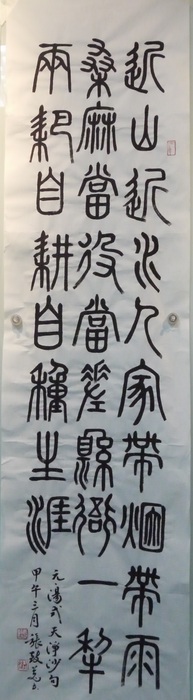 近山近水人家帶烟帶雨
桑麻當役當差縣衙一犁
兩耙自耕自種生涯
元湯式天淨沙句
甲午三月